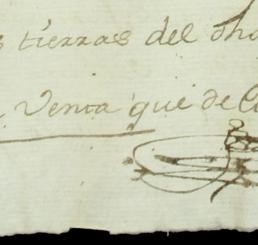 s tierras del dho
Venta que de la